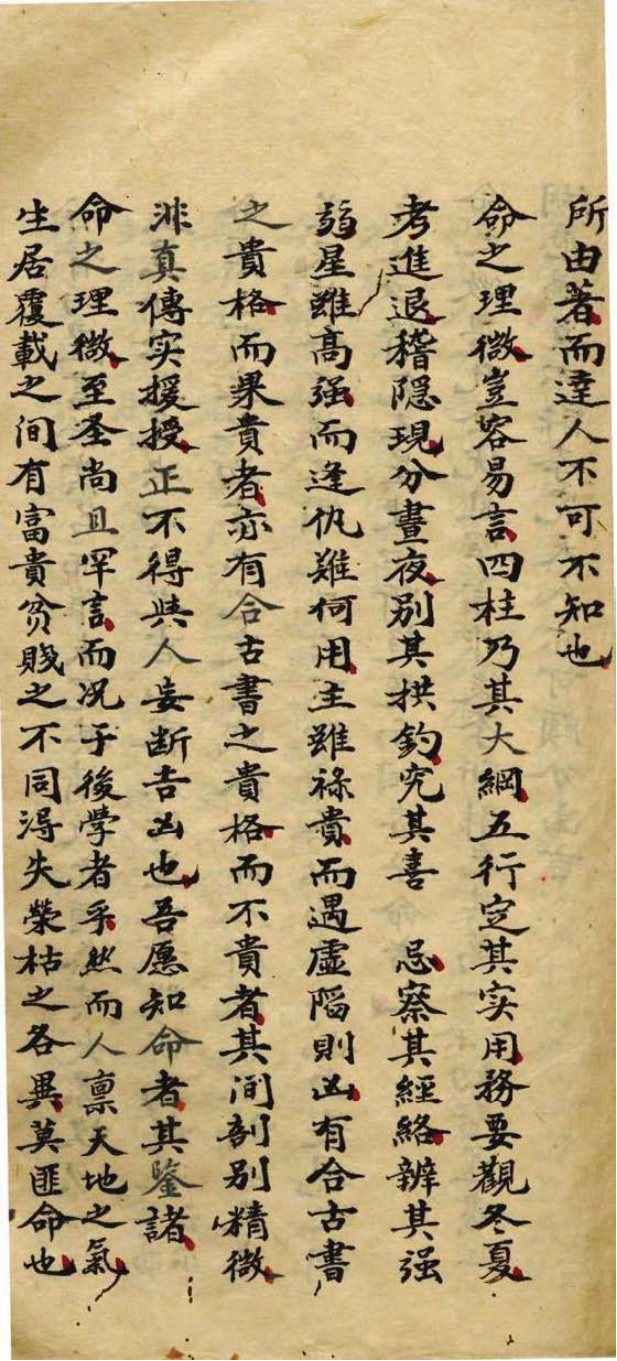 所由著而達人不可不知也
命之理微豈容易言四柱乃其大綱五行定其实用務要觀冬夏
考進退稽隱現分晝夜別其拱鈎究其喜忌察其經絡辨其强
弱星雖高强而逢仇難何用主雖禄貴而遇虛陷則凶有合古書
之貴格而果貴者亦有合古書之貴格而不貴者其间剖别精微
非真傳实授授正不得與人妄断吉凶也吾愿知命者其鉴諸
命之理微至圣尚且罕言而况于後學者乎然而人禀天地之氣
生居覆載之间有富貴贫賤之不同得失榮枯之各異莫匪命也